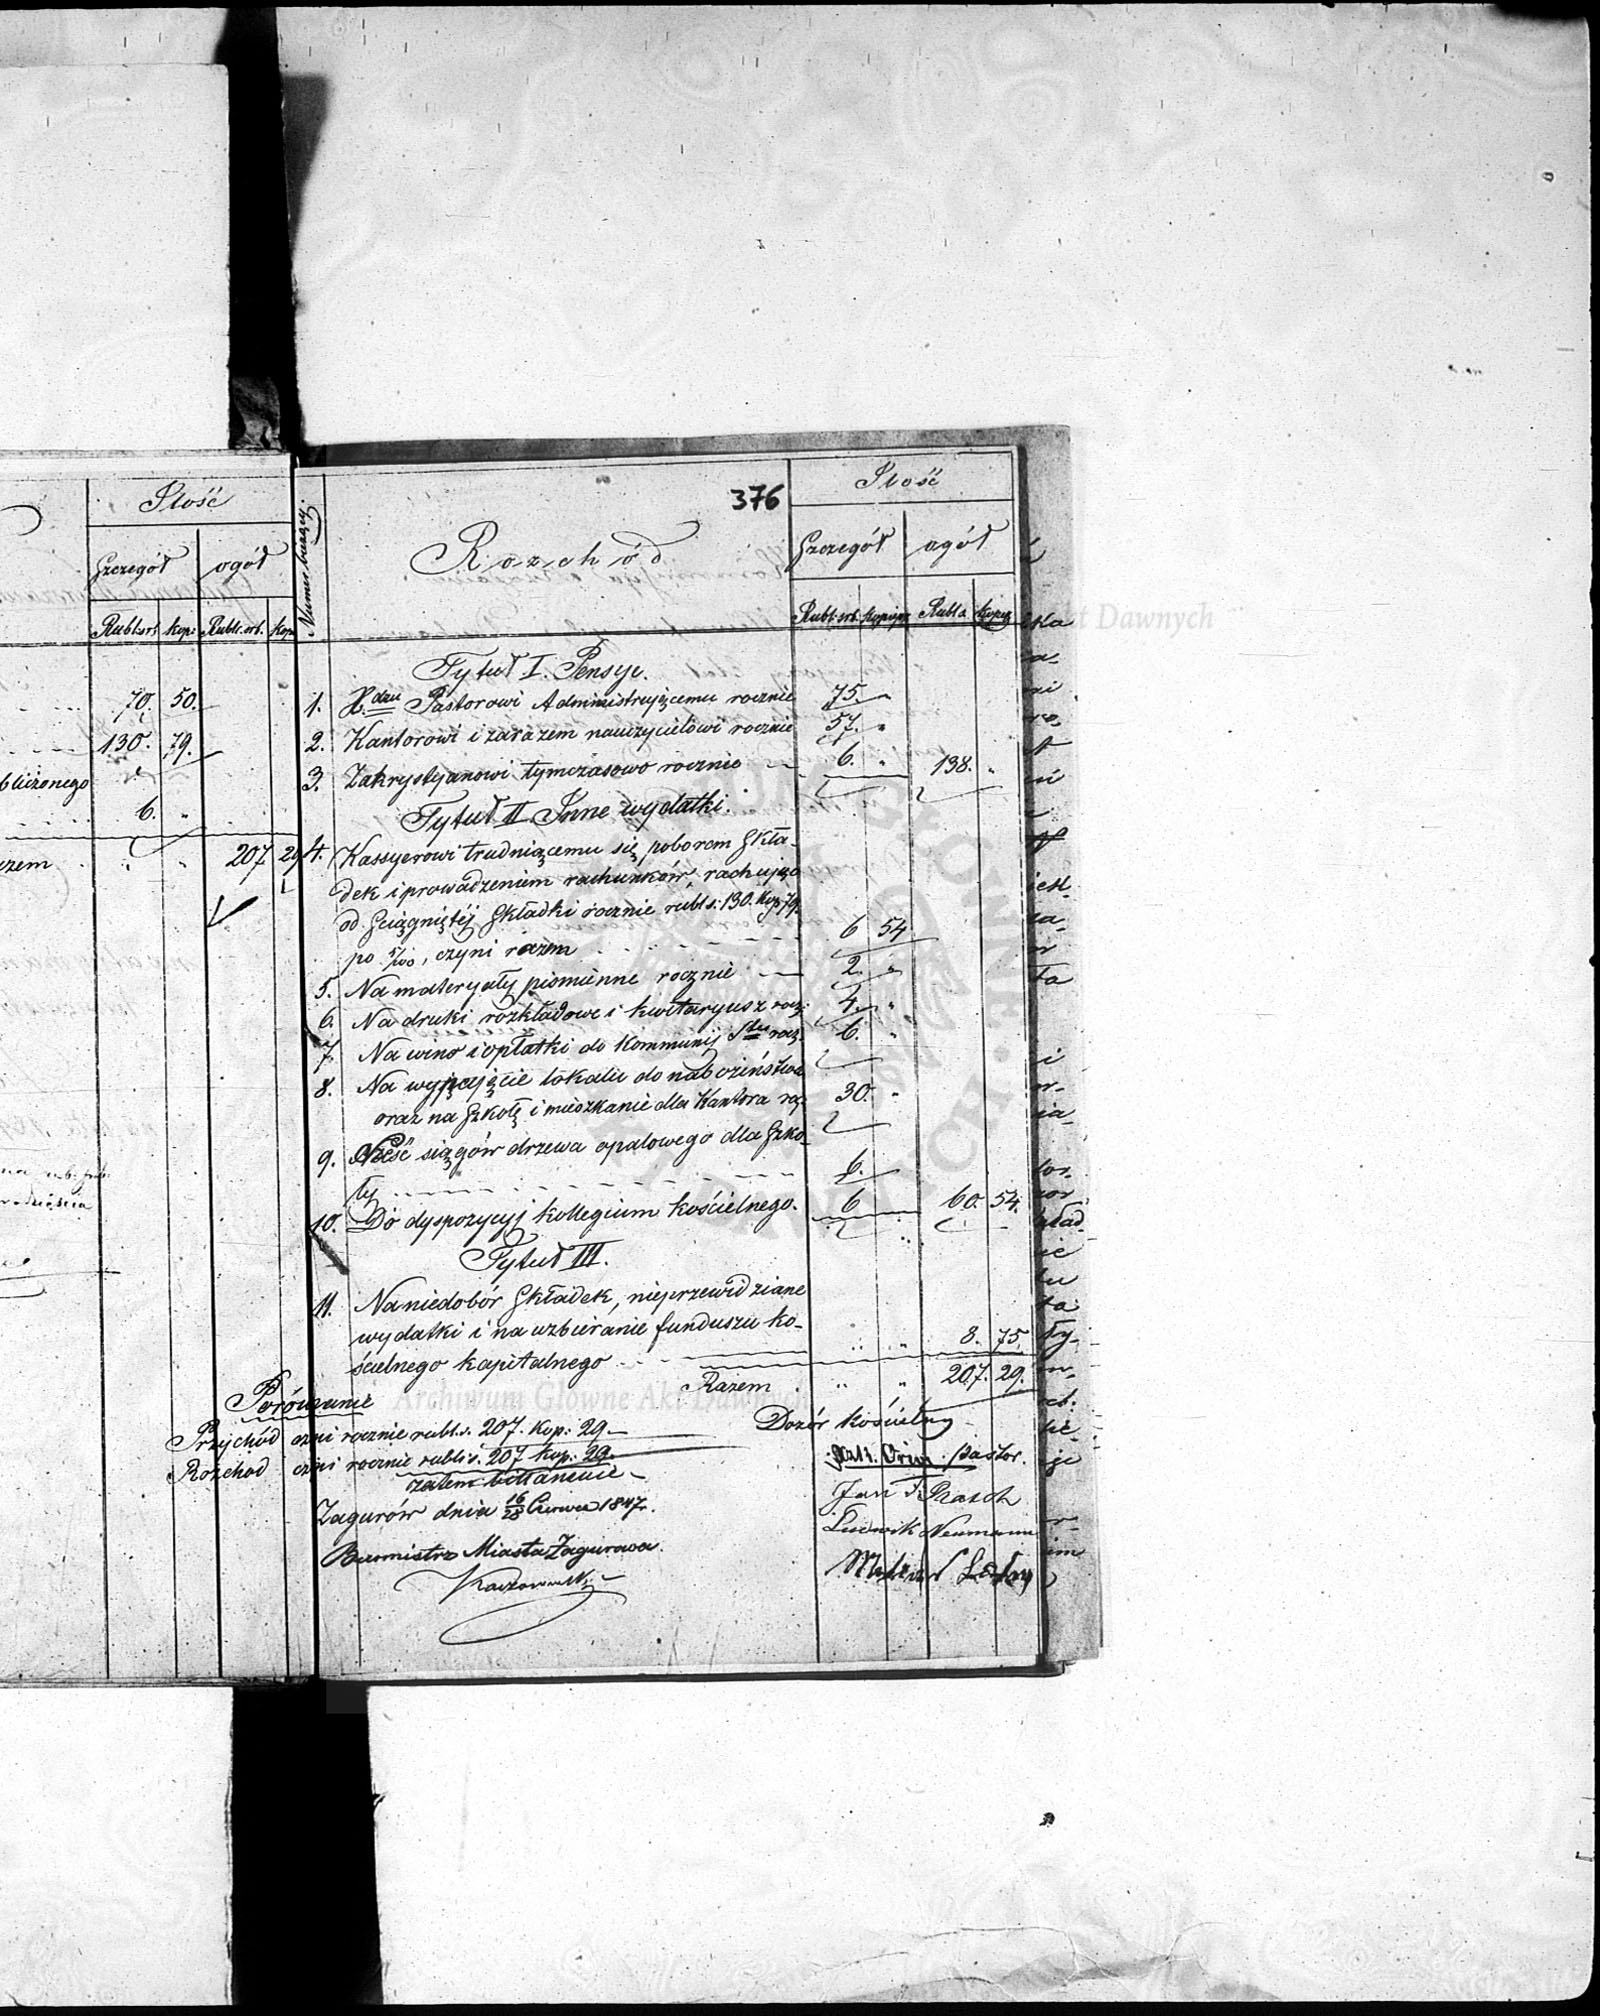 Ilość
Szczegół ogół
Rubl: srb. kop: Rubli. srb. kop.
70. 50.
130. 79.
bliżonego
6. "
razem " " 207 29
376
Numer bieżący.
Rozchód
Ilość
Szczegół ogół
Rubl. srb. kop: Rubl s. kop:
Tytuł I. Pensye.
1. Xdzu Pastorowi Administrującemu rocznie 75. "
2. Kantorowi i zarazem nauczycielowi rocznie 57. "
3. Zakrystyanowi tymczasowo rocznie 6. " 138. "
Tytuł II Inne wydatki.
4. Kassyerowi trudniącemu się poborem Skła-
dek i prowadzeniem rachunków, rachując
od Sciągniętéj Składki rocznie rubl s: 130. kop 79.
po 5/100, czyni razem 6 54
5. Na materyały piśmienne rocznie 2. "
6. Na druki rozkładowe i kwitaryusz rocz: 4. "
7. Na wino i opłatki do Kommunij Stéj rocz. 6. "
8. Na wynajęcie lokalu do nabożeństwa
oraz na Szkołę i mieszkanie dla Kantora rocz. 30. "
9. Sześć siągów drzewa opałowego dla Szko-
ły 6.
10. Do dyspozycyj kollegium kościelnego. 6 60. 54.
Tytuł III.
11. Na niedobór Składek, nieprzewidziane
wydatki i na uzbieranie funduszu ko-
ścielnego kapitalnego " " 8. 75.
Razem " " 207. 29.
Porównanie
Przychód czyni rocznie rubl. s. 207. Kop: 29.
Rozchod czyni rocznie rubli s. 207 kop. 29.
zatem
Zagurów dnia 16/28 Czerwca 1847 r.
Burmistrz Miasta Zagurowa.
Dozór kościelny
pastor.
Jan
Ludwik Neumann
Archiwum Główne Akt Dawnych
Akt Dawnych